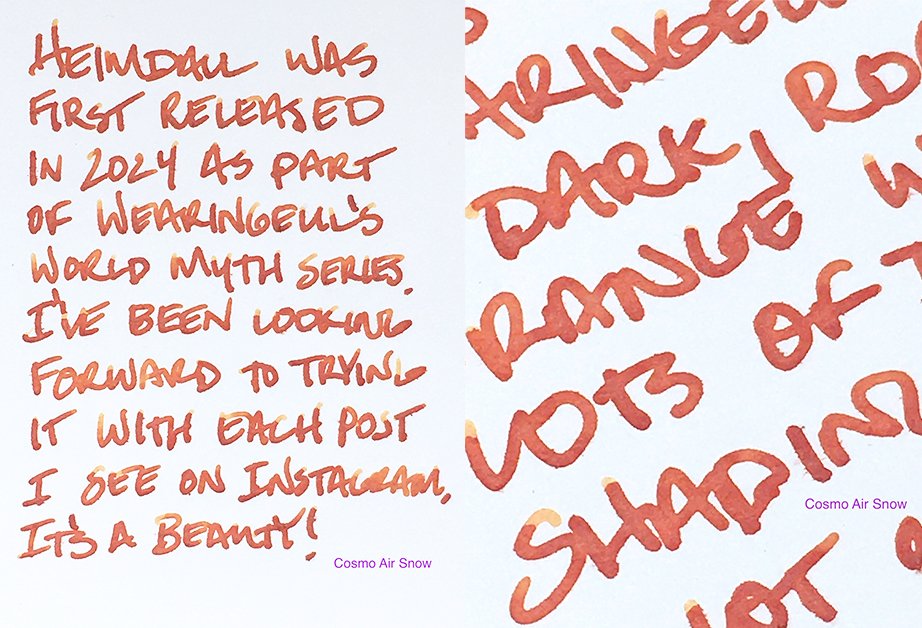 HEIMDALL WAS
FIRST RELEASED
IN 2024 AS PART
OF WEARINGEUL'S
WORLD MYTH SERIES.
I'VE BEEN LOOKING
FORWARD TO TRYING
IT WITH EACH POST
I SEE ON INSTAGRAM.
IT'S A BEAUTY!
Cosmo Air Snow
ARINGEU
DARK RO
RANGE! W
LOTS OF T
SHADING
Cosmo Air Snow
LOT